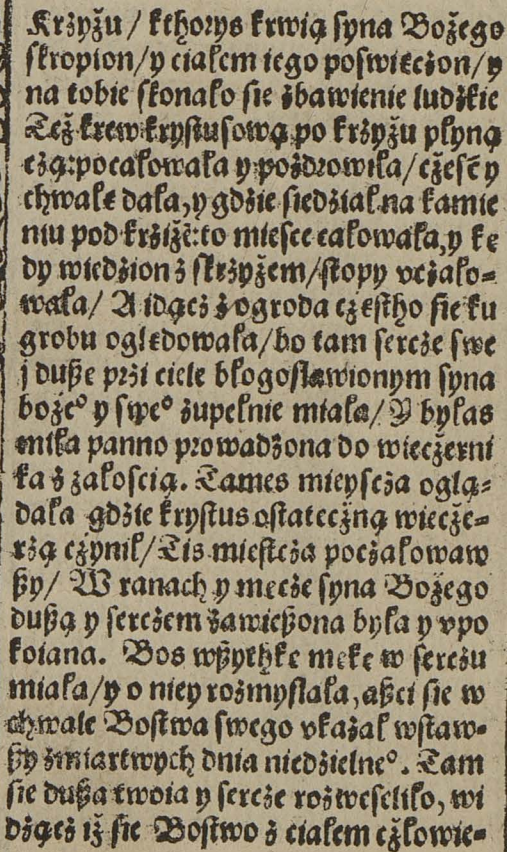 Krzyżu / kthorys krwią syna Bożego
skropion / y ciałem iego poswięczon / y
na tobie skonało sie zbawienie ludzkie
Też krew krystusową po krzyżu płyną
czą: pocałowała y pozdrowiła / czeſć y
chwałę dała, y gdzie siedział na kamie
niu pod krziżē: to miesce całowała, y kę
dy wiedzion z skrzyżem / stopy vczało⸗
wała / A idącz z ogroda czestho sie ku
grobu oględowała / bo tam sercze swe
j dußę przi ciele błogosławionym syna
bożeᵒ y sweᵒ zupełnie miała / Y byłas
miła panno prowadzona do wieczerni
ka z załoscią. Tames mieyscza oglą⸗
dała gdzie krystus ostateczną wiecże⸗
rzą czynił / Tis miestcza poczałowaw
ßy / W ranach y męcze syna Bożego
dußą y serczem zawießona była y vpo
koiana. Bos wßythkę mękę w serczu
miała / y o niey rozmyslała, aßci sie w
chwale Bostwa swego vkazał wstaw⸗
ßy zmartwych dnia niedzielneᵒ. Tam
sie dußa twoia y sercze rozweseliło, wi
dzącz iż sie Bostwo z ciałem człowie⸗